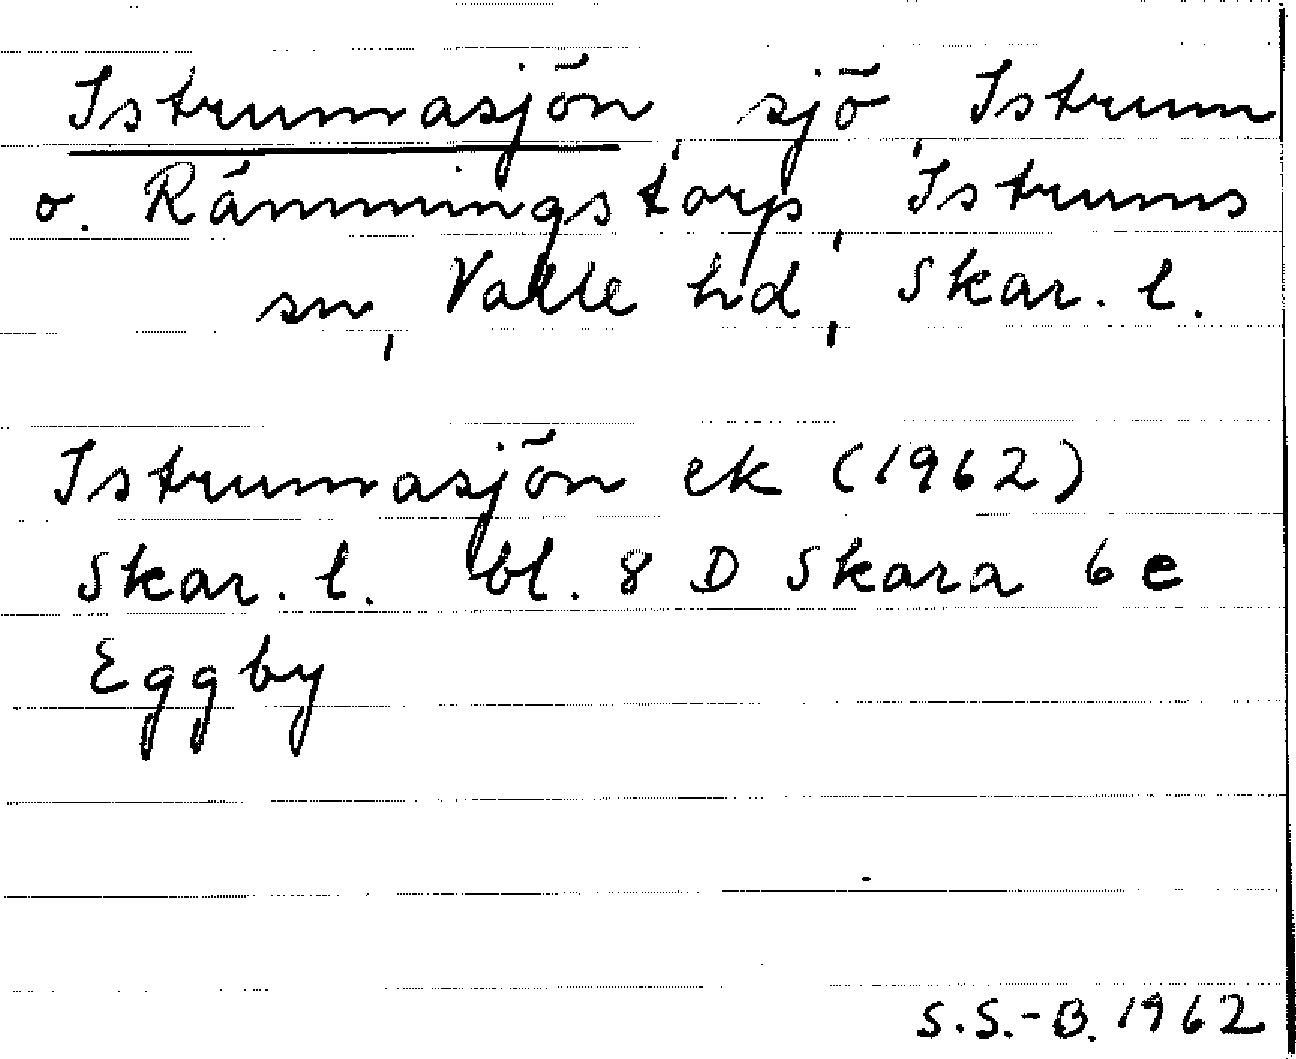 Istrumasjön, sjö, Istrum
o. Rämmingstorp, Istrums
sn, Valle hd, Skar. l.
Istrumasjön ek (1962)
Skar. l. bl. 8 D Skara 6 e
Eggby
S.S.-B. 1962